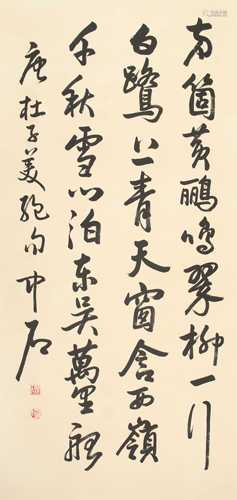 两箇黄鹂鸣翠柳一行
白鹭上青天窗含西岭
千秋雪门泊东吴万里船
唐杜子美绝句中石